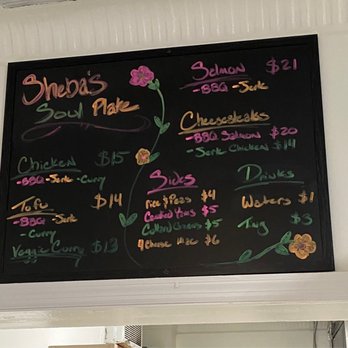 Sheba's
Soul Plate
Chicken $15
-BBQ -Jerk -Curry
Tofu $14
-BBQ -Jerk
-Curry
Veggie Curry $13
Sides
Rice & Peas $4
Candied Yams $5
Collard Greens $5
4 Cheese Mac $6
Salmon $21
-BBQ -Jerk
Cheesesteaks
-BBQ Salmon $20
-Jerk Chicken $14
Drinks
Waters $1
Ting $3